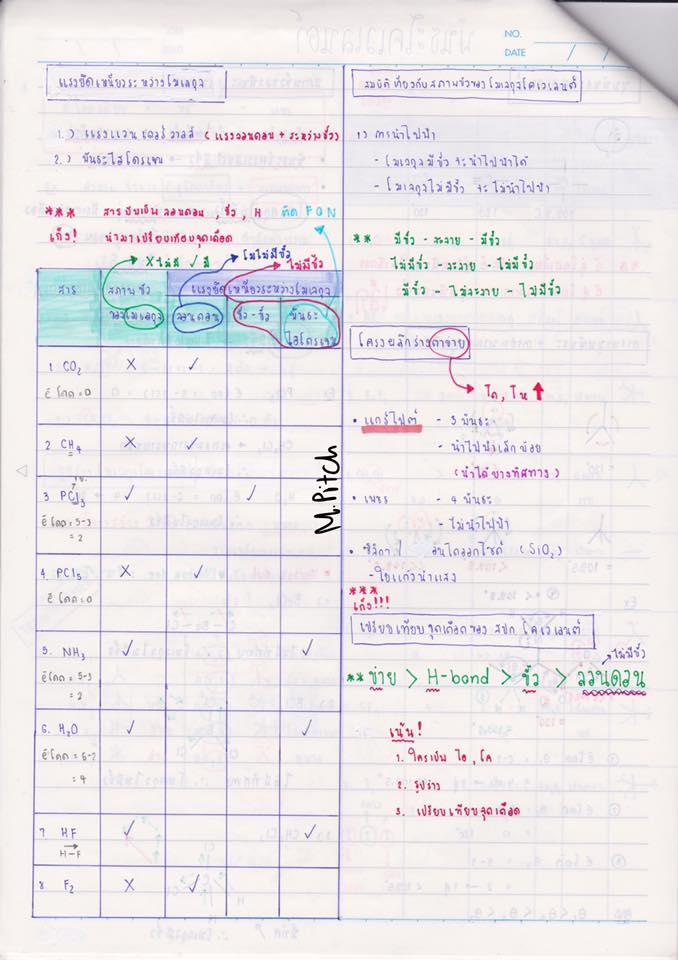 NO.
DATE / /
แรงยึดเหนี่ยวระหว่างโมเลกุล
1.) แรงแวนเดอร์วาลส์ (แรงลอนดอน + ระหว่างขั้ว)
2.) พันธะไฮโดรเจน
*** สารใดเป็น ลอนดอน , ขั้ว , H ติด F O N
เก็ง! นำมาเปรียบเทียบจุดเดือด
X ไม่มี ✓ มี
โมไม่มีขั้ว
ไม่มีขั้ว
สาร
สภาพขั้วของโมเลกุล
แรงยึดเหนี่ยวระหว่างโมเลกุล
ลอนดอน
ขั้ว - ขั้ว
พันธะไฮโดรเจน
1. CO₂ X ✓
ē โดด = 0
2. CH₄ X ✓
3. PCl₃ ✓ ✓
ē โดด = 5-3
= 2
4. PCl₅ X ✓
ē โดด = 0
5. NH₃ ✓ ✓
ē โดด = 5-3
= 2
6. H₂O ✓ ✓
ē โดด = 6-2
= 4
7. HF ✓ ✓
H-F
8. F₂ X ✓
M.Pitch
สมบัติเกี่ยวกับสภาพขั้วของโมเลกุลโคเวเลนต์
1) การนำไฟฟ้า
- โมเลกุลมีขั้ว จะนำไฟฟ้าได้
- โมเลกุลไม่มีขั้ว จะไม่นำไฟฟ้า
** มีขั้ว - ละลาย - มีขั้ว
ไม่มีขั้ว - ละลาย - ไม่มีขั้ว
มีขั้ว - ไม่ละลาย - ไม่มีขั้ว
โครงผลึกร่างตาข่าย
• แกรไฟต์ - 3 พันธะ
- นำไฟฟ้าเล็กน้อย
(นำได้บางทิศทาง)
• เพชร - 4 พันธะ
- ไม่นำไฟฟ้า
(SiO₂)
- ใยแก้วนำแสง
***
เก็ง!!!
เปรียบเทียบจุดเดือดของ สปก โคเวเลนต์
ไม่มีขั้ว
** ข่าย > H-bond > ขั้ว > ลอนดอน
เน้น!
1. ใครเป็น ไอ , โค
2. รูปร่าง
3. เปรียบเทียบจุดเดือด